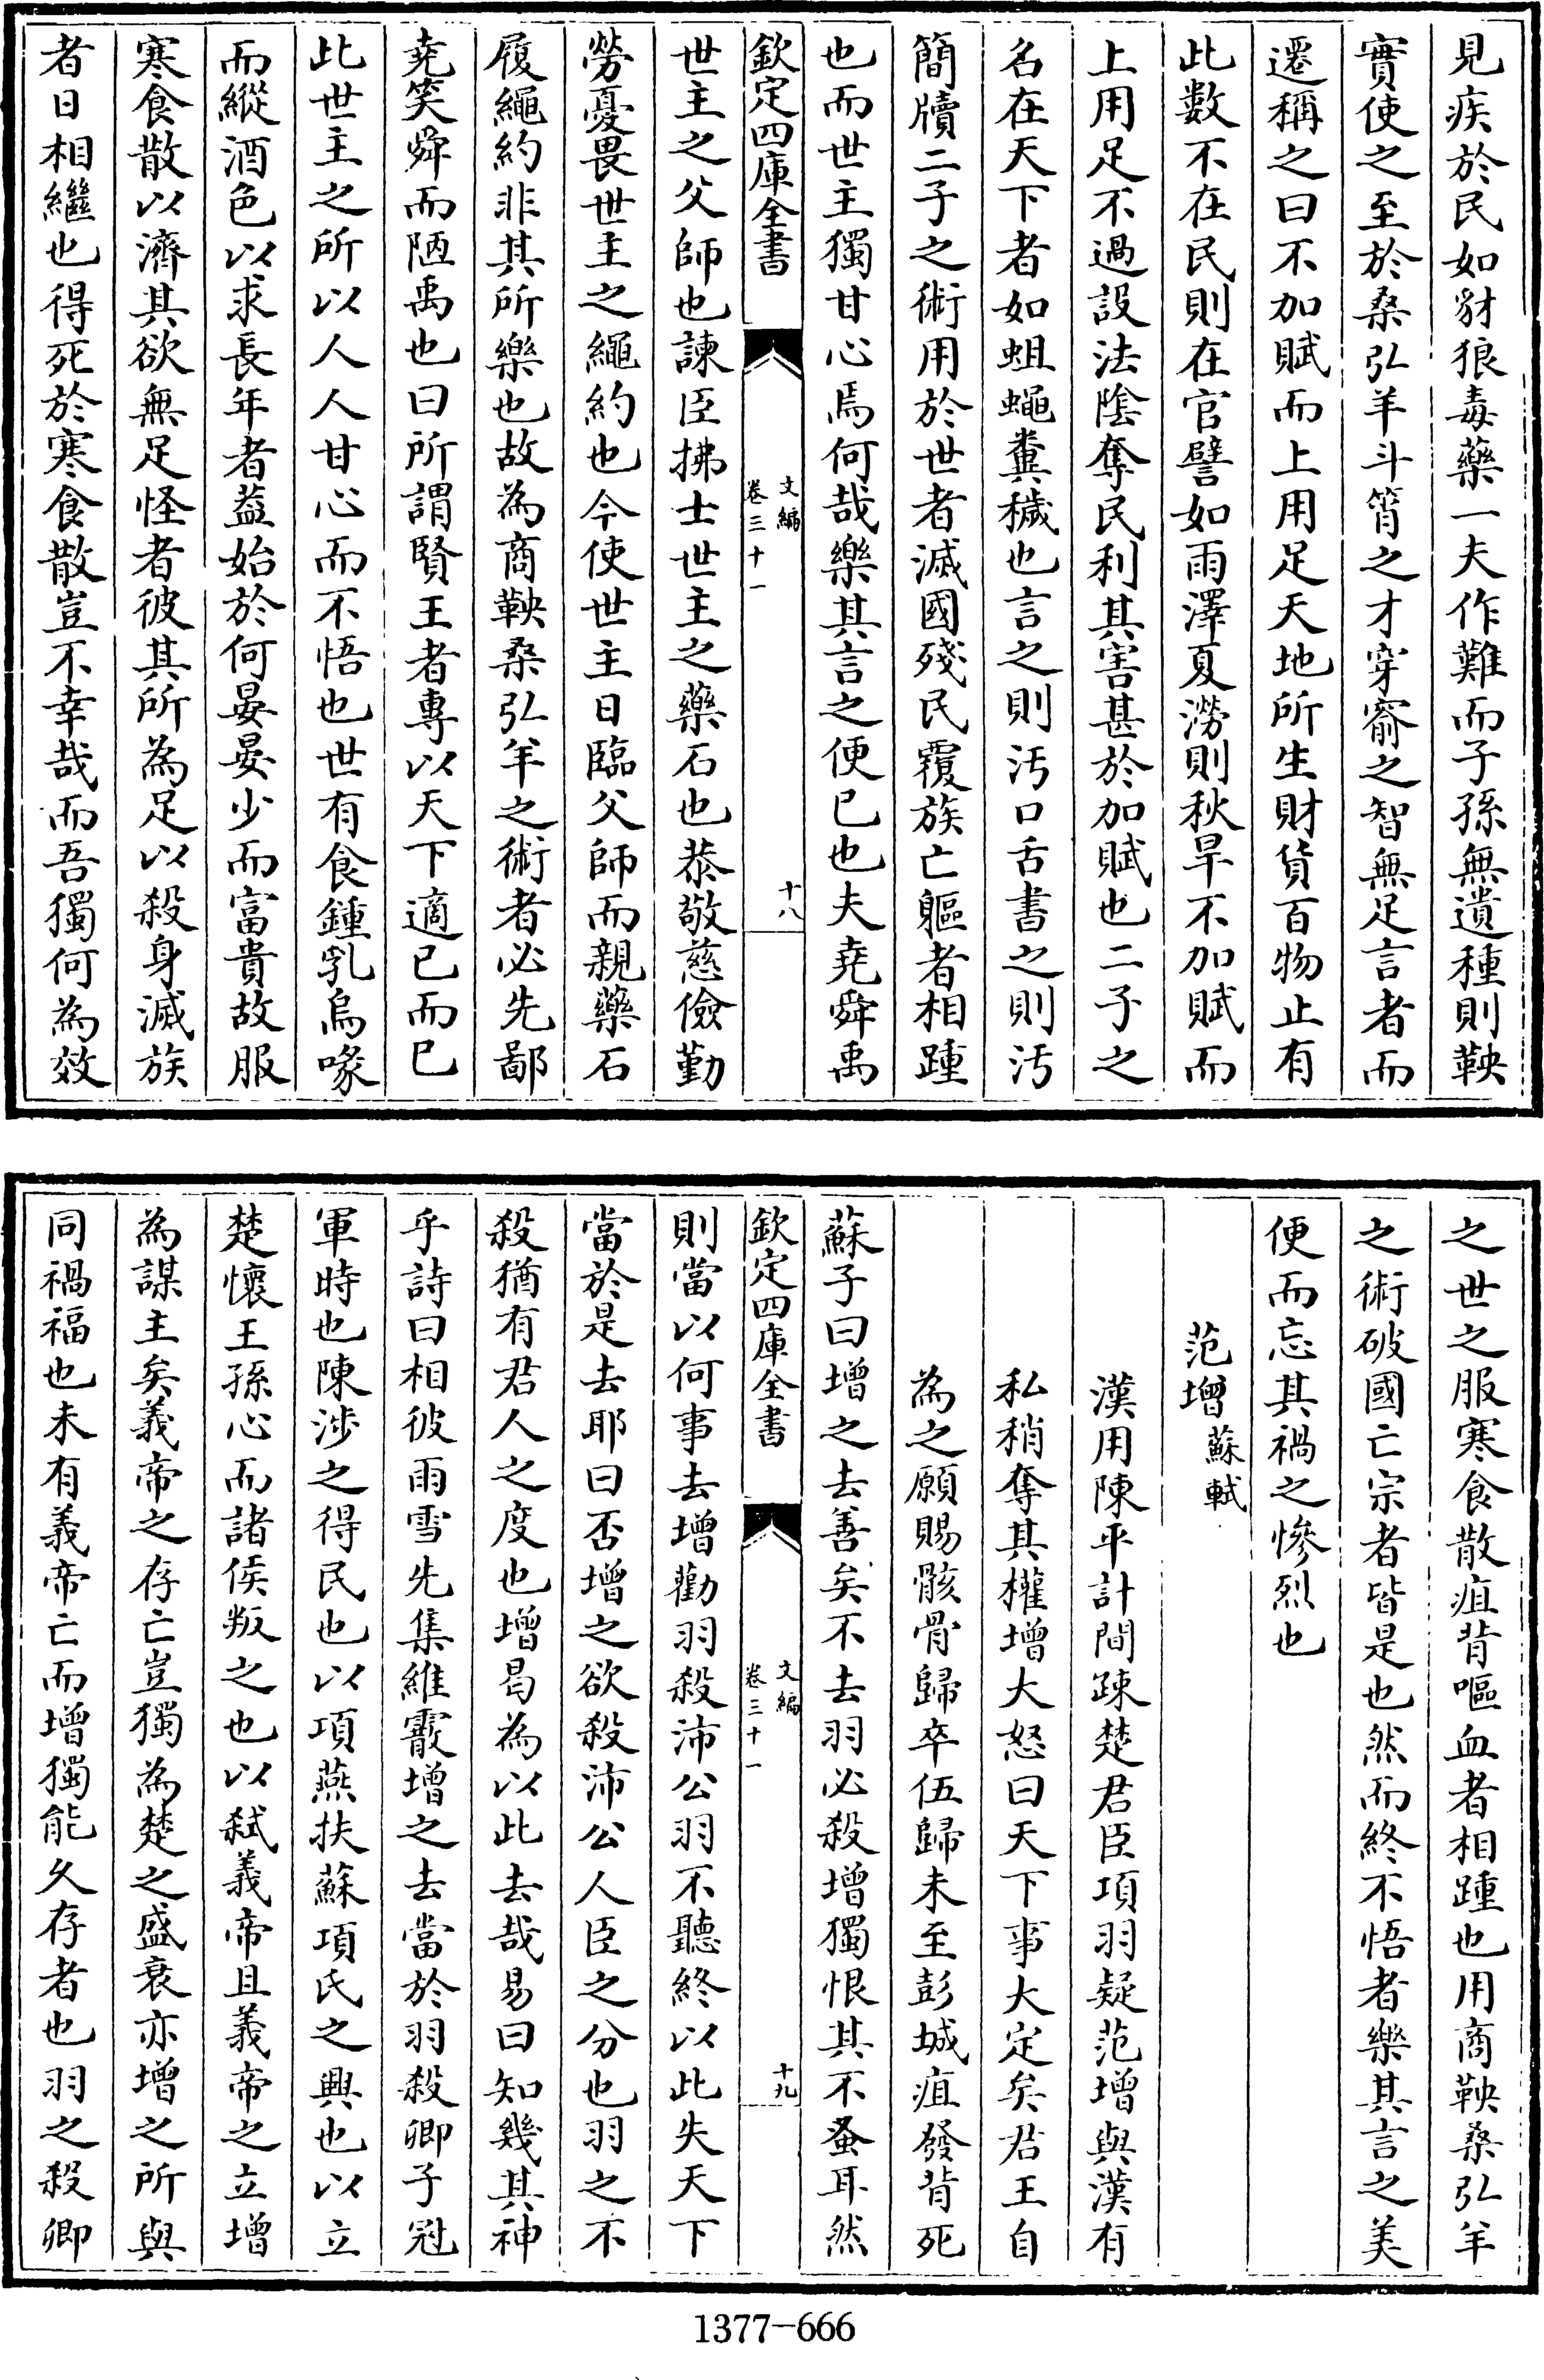 見疾於民如豺狼毒藥一夫作難而子孫無遺種則鞅
實使之至於桑弘羊斗筲之才穿窬之智無足言者而
遷稱之曰不加賦而上用足天地所生財貨百物止有
此數不在民則在官譬如雨澤夏澇則秋旱不加賦而
上用足不過設法陰奪民利其害甚於加賦也二子之
名在天下者如蛆蠅糞穢也言之則汚口舌書之則汚
簡牘二子之術用於世者滅國殘民覆族亡軀者相踵
也而世主獨甘心焉何哉樂其言之便已也夫堯舜禹
欽定四庫全書
文編
卷三十一
十八
世主之父師也諫臣拂士世主之藥石也恭敬慈儉勤
勞憂畏世主之繩約也今使世主日臨父師而親藥石
履繩約非其所樂也故為商鞅桑弘羊之術者必先鄙
堯笑舜而陋禹也曰所謂賢王者專以天下適已而已
此世主之所以人人甘心而不悟也世有食鍾乳烏喙
而縱酒色以求長年者葢始於何晏晏少而富貴故服
寒食散以濟其欲無足怪者彼其所為足以殺身滅族
者日相繼也得死於寒食散豈不幸哉而吾獨何為效
之世之服寒食散疽背嘔血者相踵也用商鞅桑弘羊
之術破國亡宗者皆是也然而終不悟者樂其言之美
便而忘其禍之慘烈也
范增蘇軾
漢用陳平計間疎楚君臣項羽疑范增與漢有
私稍奪其權增大怒曰天下事大定矣君王自
為之願賜骸骨歸卒伍歸未至彭城疽發背死
蘇子曰增之去善矣不去羽必殺增獨恨其不蚤耳然
欽定四庫全書
文編
卷三十一
十九
則當以何事去增勸羽殺沛公羽不聽終以此失天下
當於是去耶曰否增之欲殺沛公人臣之分也羽之不
殺猶有君人之度也增曷為以此去哉易曰知幾其神
乎詩曰相彼雨雪先集維霰增之去當於羽殺卿子冠
軍時也陳涉之得民也以項燕扶蘇項氏之興也以立
楚懷王孫心而諸侯叛之也以弒義帝且義帝之立增
為謀主矣義帝之存亡豈獨為楚之盛衰亦增之所與
同禍福也未有義帝亡而增獨能久存者也羽之殺卿
1377-666